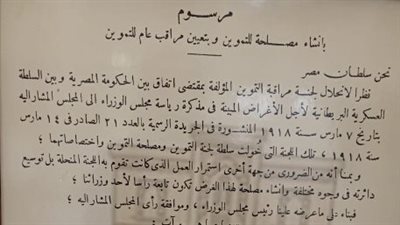 مرسوم
بانشاء مصلحة للتموين وبتعيين مراقب عام للتموين
نحن سلطان مصر
نظرا لانحلال لجنة مراقبة التموين المؤلفة بمقتضى اتفاق بين الحكومة المصرية وبين السلطة
العسكرية البريطانية لأجل الأغراض المبينة فى مذكرة رياسة مجلس الوزراء الى المجلس المشار اليه
بتاريخ ٧ مارس سنة ١٩١٨ المنشورة فى الجريدة الرسمية بالعدد ٢١ الصادر فى ١٤ مارس
سنة ١٩١٨، تلك اللجنة التى خولت سلطة لجنة التموين ومصلحة التموين واختصاصاتهما ؛
وبما أنه من الضرورى من جهة أخرى استمرار العمل الذى كانت تقوم به اللجنة المنحلة بل توسيع
دائرته فى وجوه مختلفة وانشاء مصلحة لهذا الغرض تكون تابعة رأسا لأحد وزرائنا ؛
فبناء على ما عرضه علينا رئيس مجلس الوزراء، وموافقة رأى المجلس المشار اليه ؛